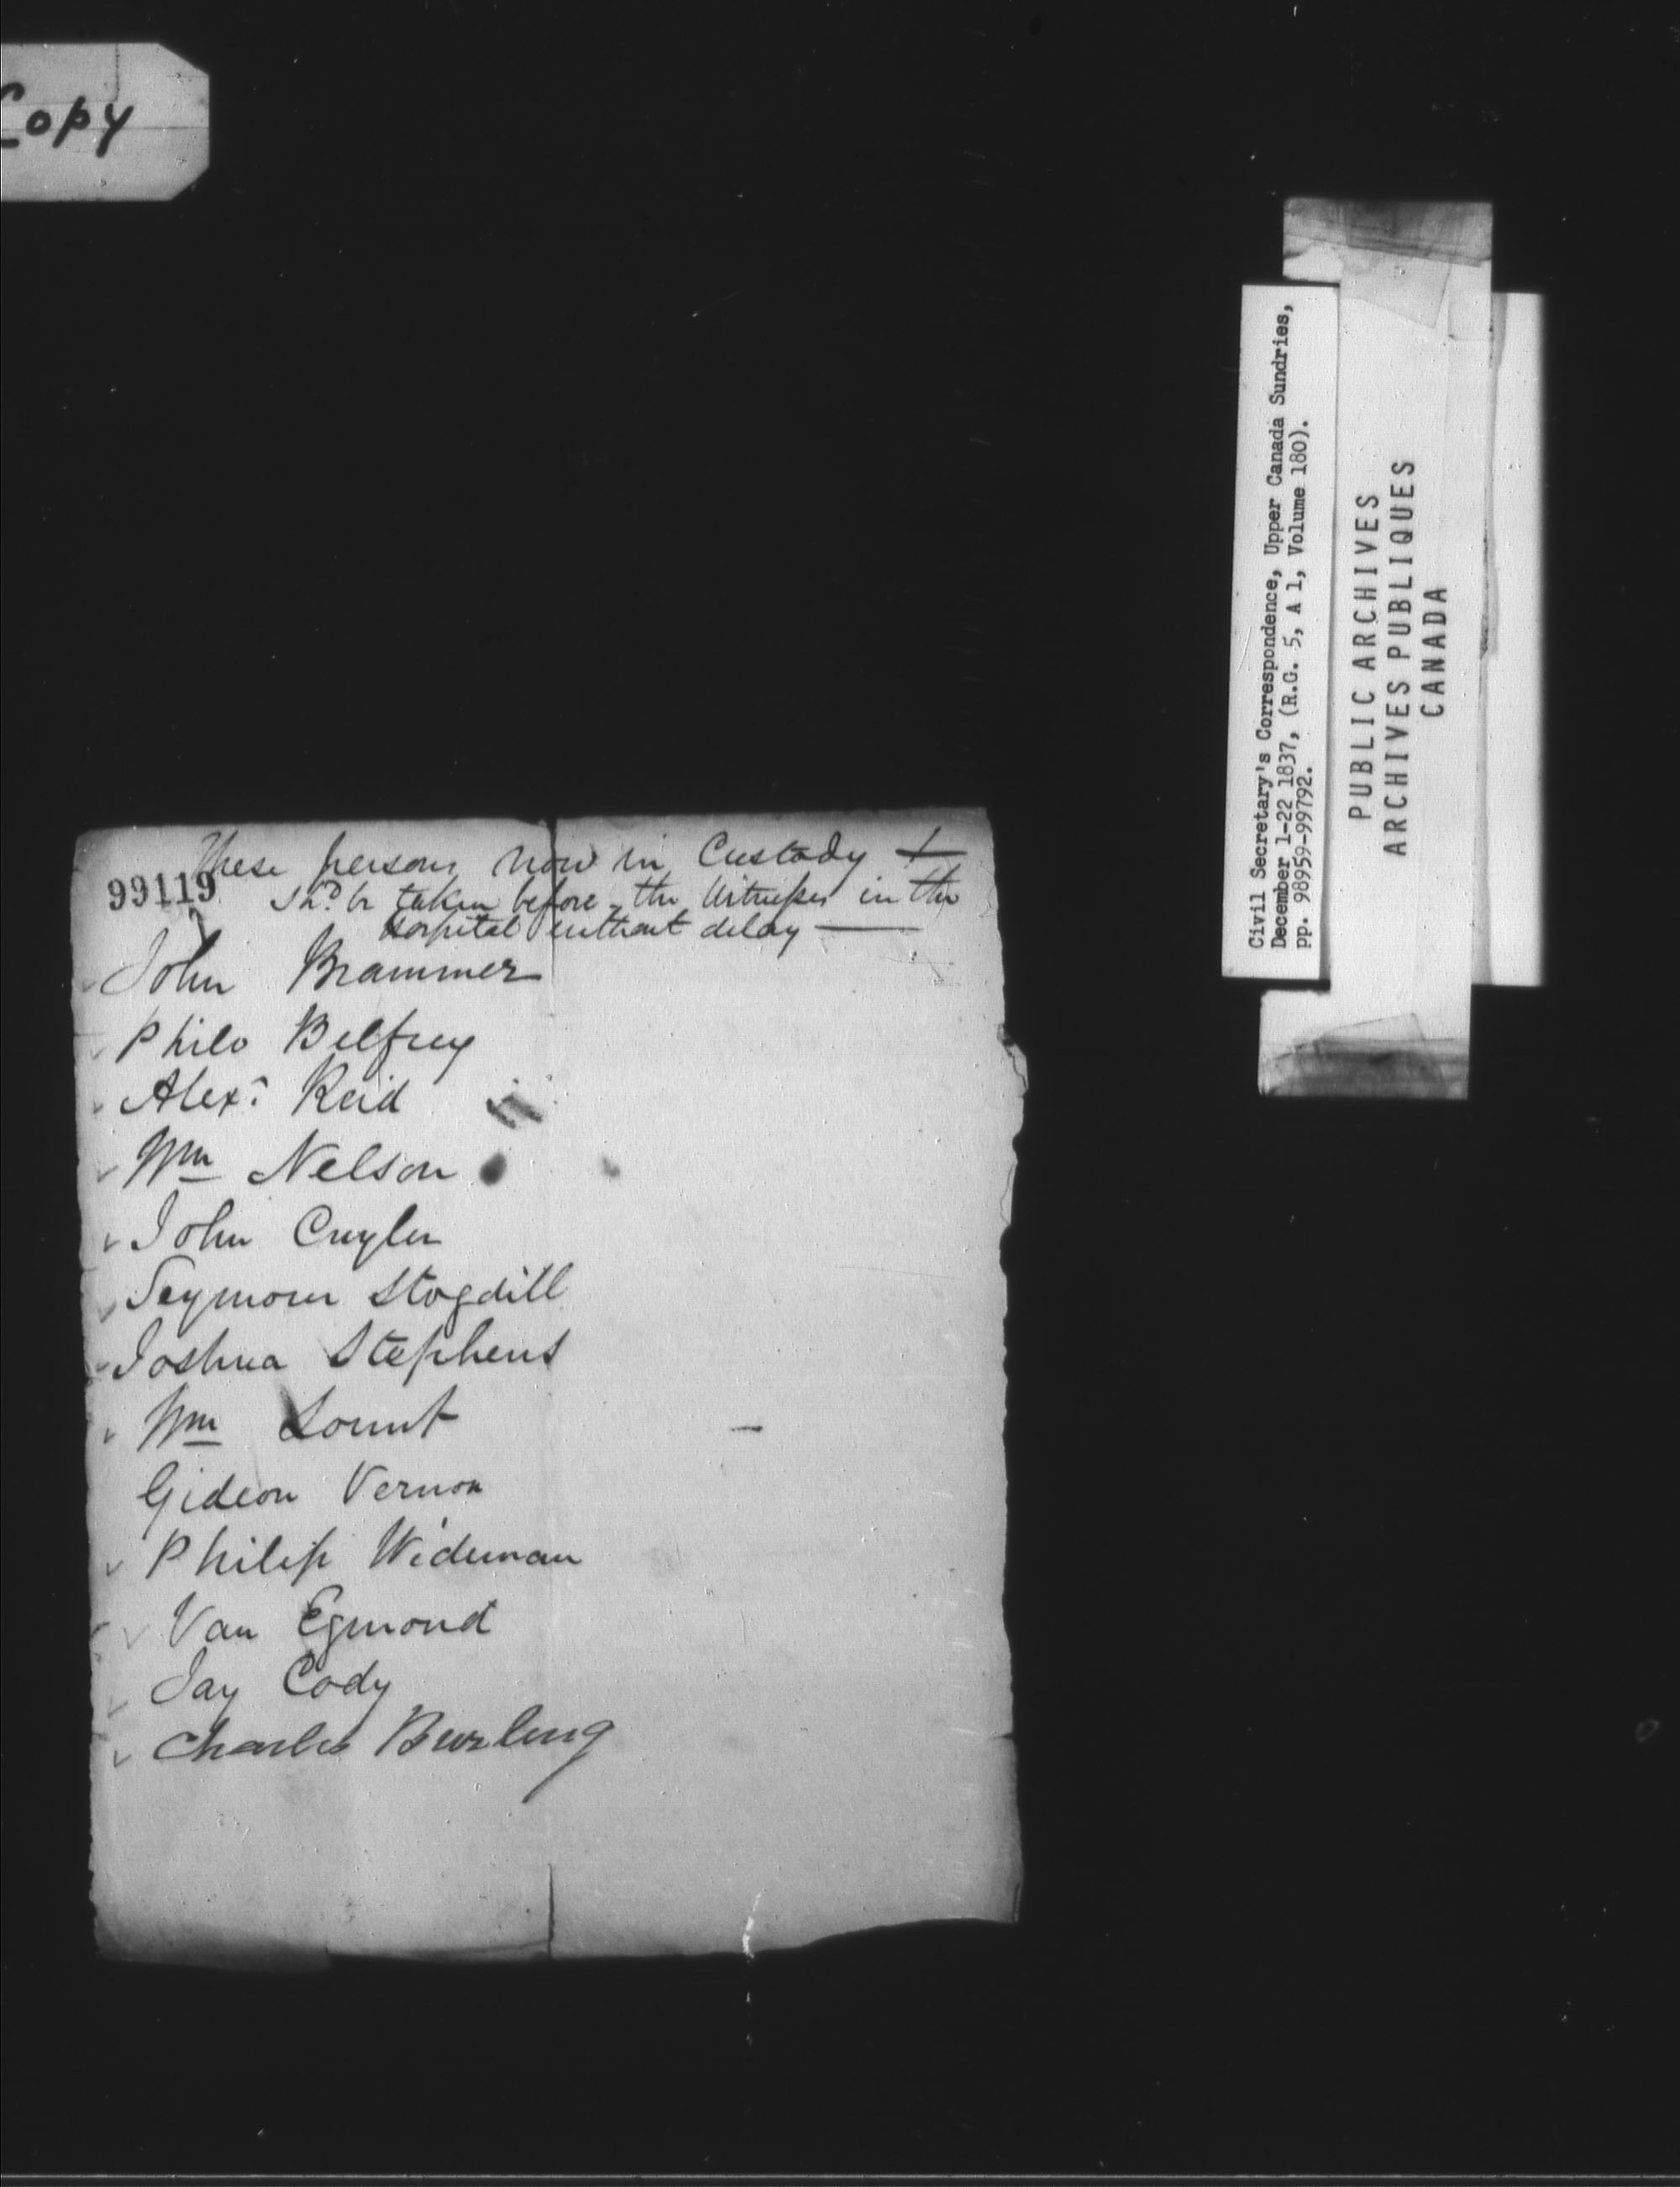 Copy
These persons now in Custody &
99119
shd. be taken before the Witnesses in the
Hospital without delay —
John Brammer
Philo Belfrey
Alexr. Reid
Wm Nelson
John Cuyler
Seymour Stogdill
Joshua Stephens
Wm Lount
Gideon Vernon
Philip Wideman
Van Egmond
Jay Cody
Charles Burling
Civil Secretary's Correspondence, Upper Canada Sundries,
December 1-22 1837, (R.G. 5, A 1, Volume 180).
pp. 98959-99792.
PUBLIC ARCHIVES
ARCHIVES PUBLIQUES
CANADA